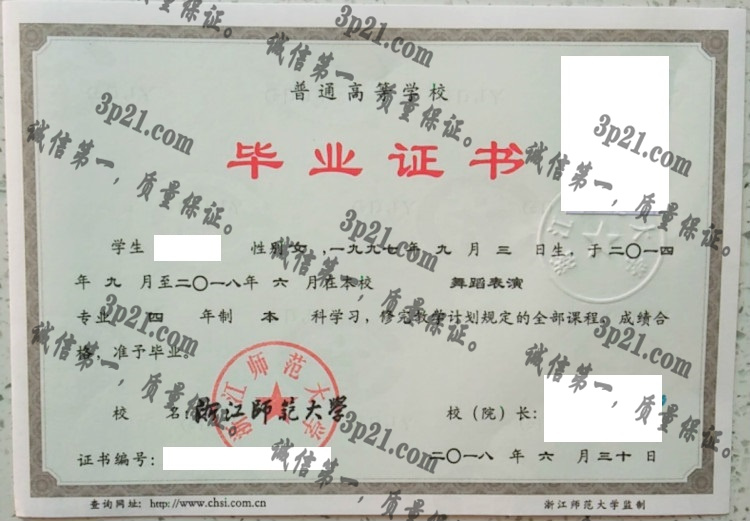 普通高等学校
毕业证书
学生 性别 女 ,一九九七年 九 月 三 日生,于二〇一四
年 九 月至二〇一八年 六 月在本校 舞蹈表演
专业 四 年制 本 科学习,修完教学计划规定的全部课程,成绩合
格,准予毕业。
浙江师范大学
校 名:浙江师范大学 校(院)长:
证书编号: 二〇一八 年 六 月 三十 日
查询网址:http://www.chsi.com.cn 浙江师范大学监制
3p21.com
诚信第一,质量保证。
3p21.com
诚信第一,质量保证。
3p21.com
诚信第一,质量保证。
3p21.com
诚信第一,质量保证。
3p21.com
诚信第一,质量保证。
3p21.com
诚信第一,质量保证。
3p21.com
诚信第一,质量保证。